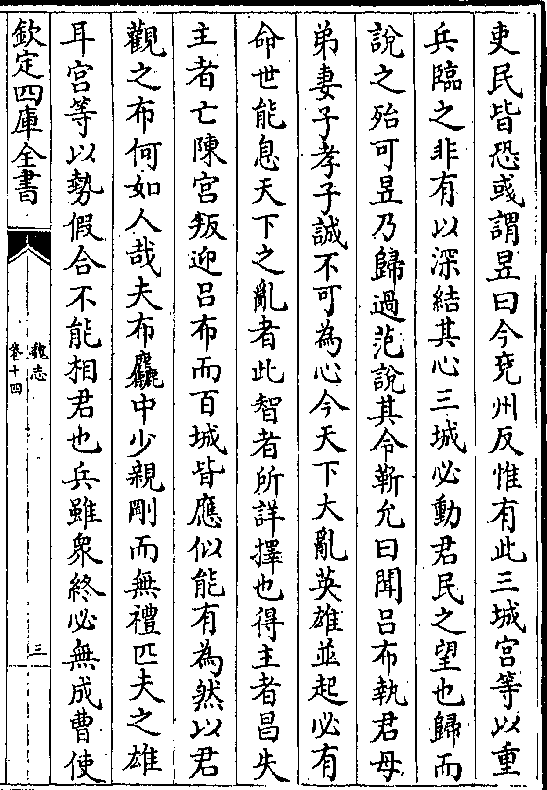 吏民皆恐彧謂昱曰今兗州反惟有此三城宫等以重
兵臨之非有以深結其心三城必動君民之望也歸而
說之殆可昱乃歸過范說其令靳允曰聞吕布執君母
弟妻子孝子誠不可為心今天下大亂英雄並起必有
命世能息天下之亂者此智者所詳擇也得主者昌失
主者亡陳宫叛迎吕布而百城皆應似能有為然以君
觀之布何如人哉夫布麤中少親剛而無禮匹夫之雄
耳宫等以勢假合不能相君也兵雖衆終必無成曹使
欽定四庫全書
魏志
卷十四
三